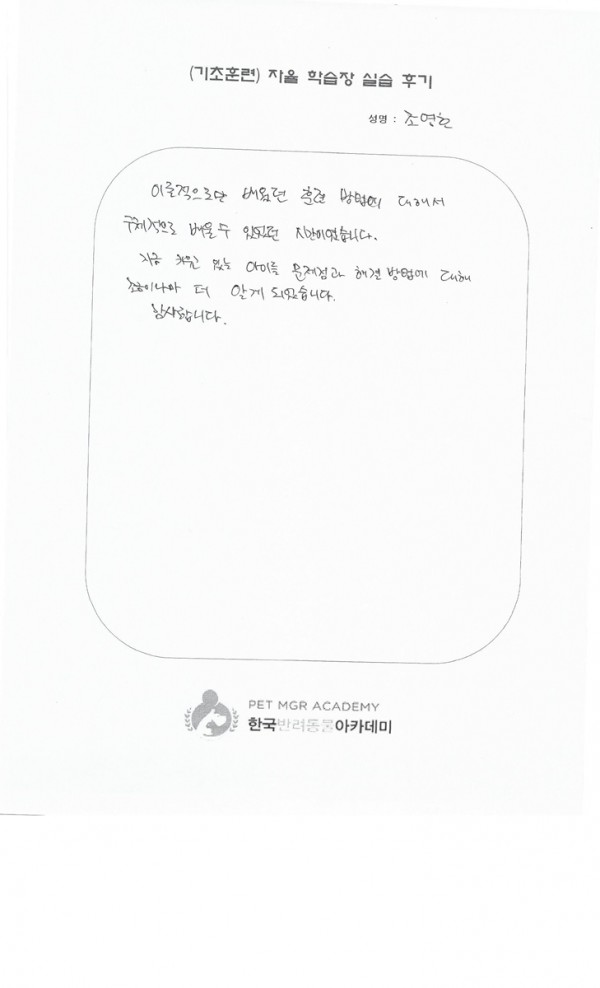 (기초훈련) 자율 학습장 실습 후기
성명 : 조연호
이론적으로만 배웠던 훈련 방법에 대해서
구체적으로 배울수 있었던 시간이였습니다.
지금 키우고 있는 아이들 문제점과 해결 방법에 대해
조금이나마 더 알게 되었습니다.
감사합니다.
PET MGR ACADEMY
한국반려동물아카데미